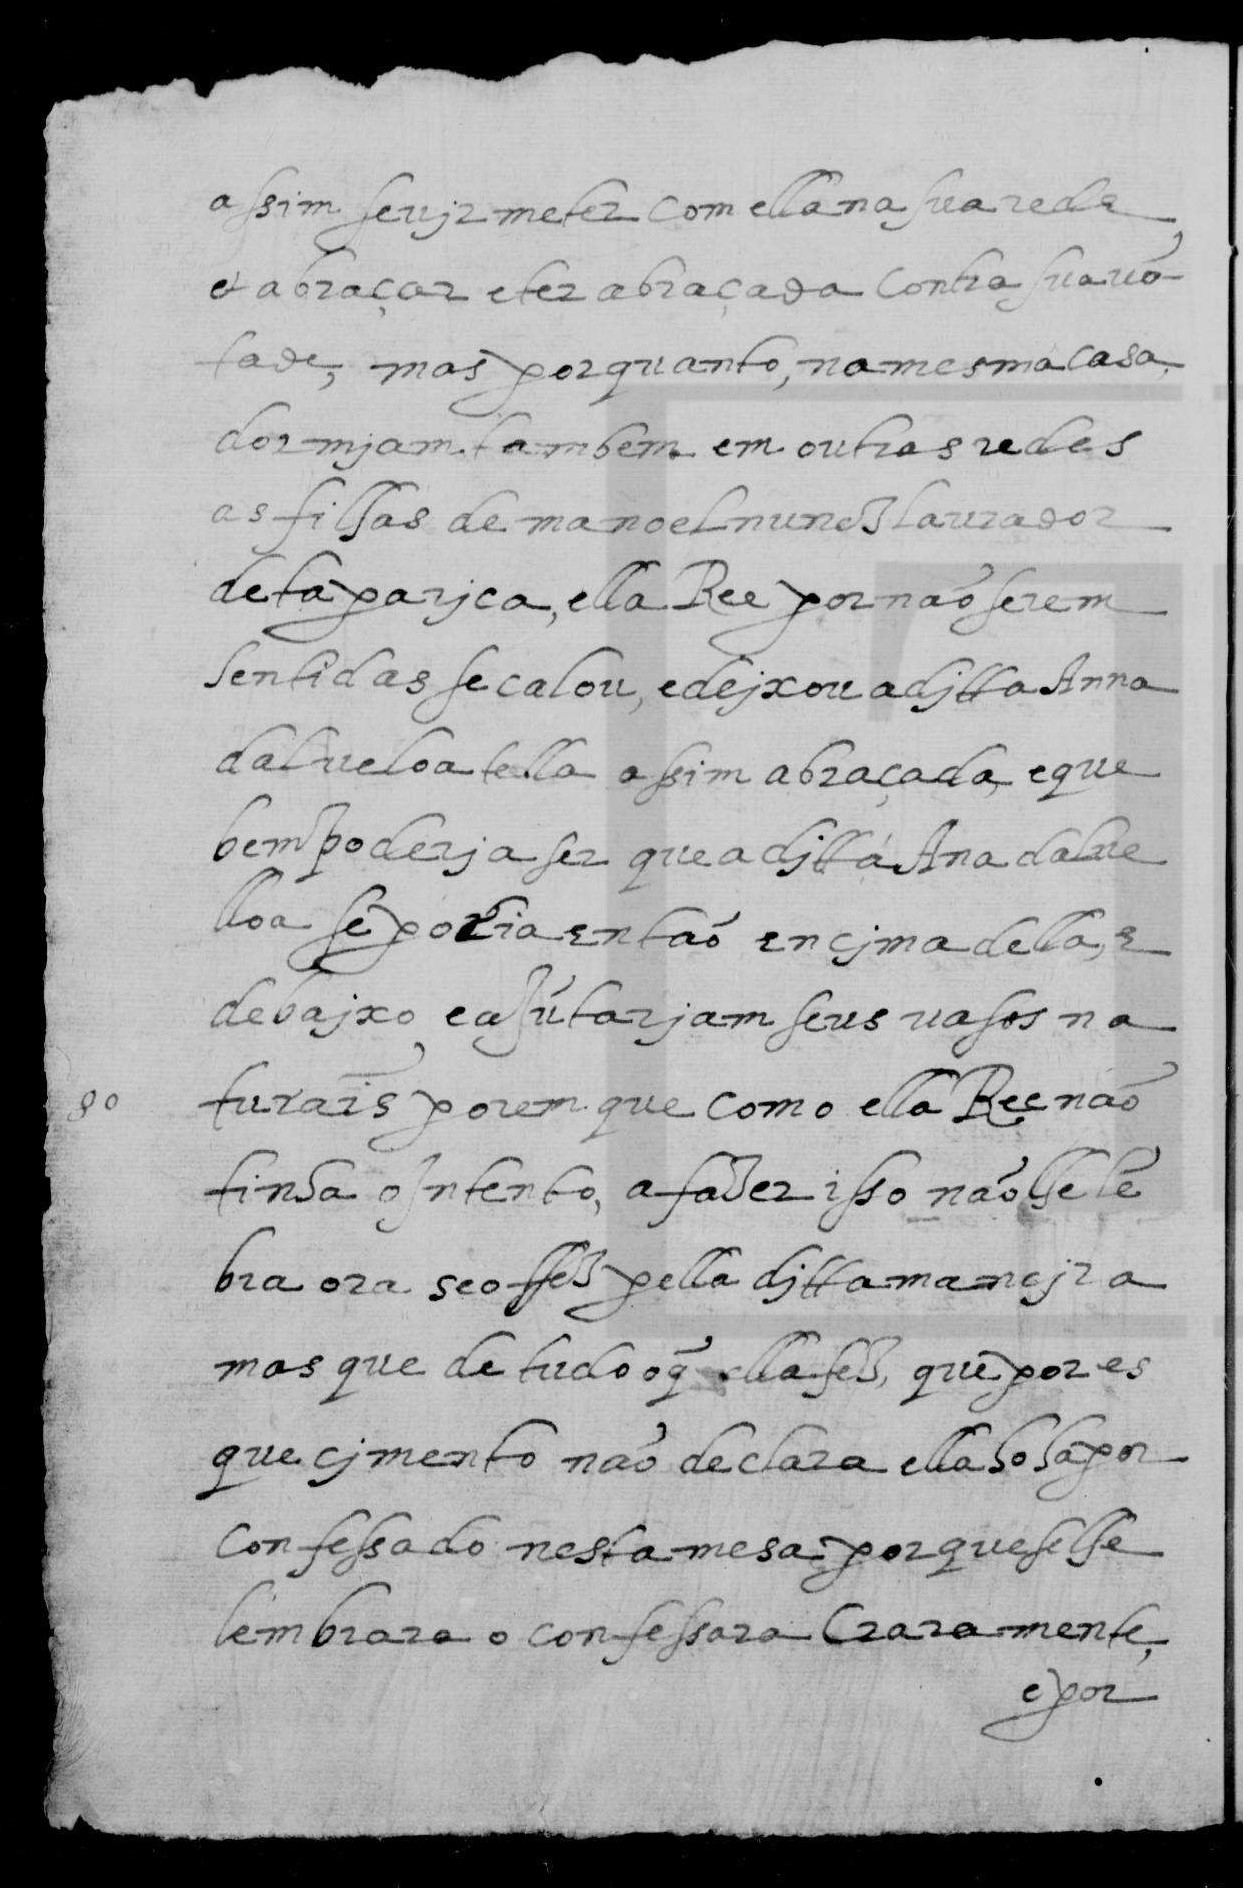 assim se vjr meter com ella na sua rede,
e abraçar e ter abraçada contra sua võ-
tade, mas porquanto, na mesma casa,
dormjam tambem em outras redes
as filhas de manoel nunez laurador
de taparjca, ella Ree por não serem
sentidas se calou, e dejxou a djtta Anna
dalueloa tella assim abraçada, e que
bem poderja ser que a djtta Ana dalue
lloa se poria então encjma della, e
debajxo, e ajūtarjam seus uasos na
80 turais porem que como ella Ree não
tinha ointento, a fazer isso não lhe lē
bra ora se o ffez pella djtta manejra
mas que de tudo o q̃ ella fez, que por es
quecjmento não declara ella ho ha por
confessado nesta mesa, porque se lhe
lembrara o confessara Craramente,
e por